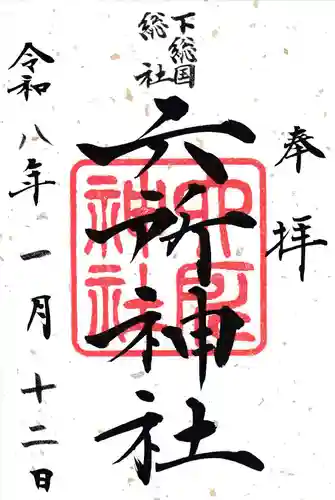 奉拝
下総国
総社
六所神社
令和八年一月十二日